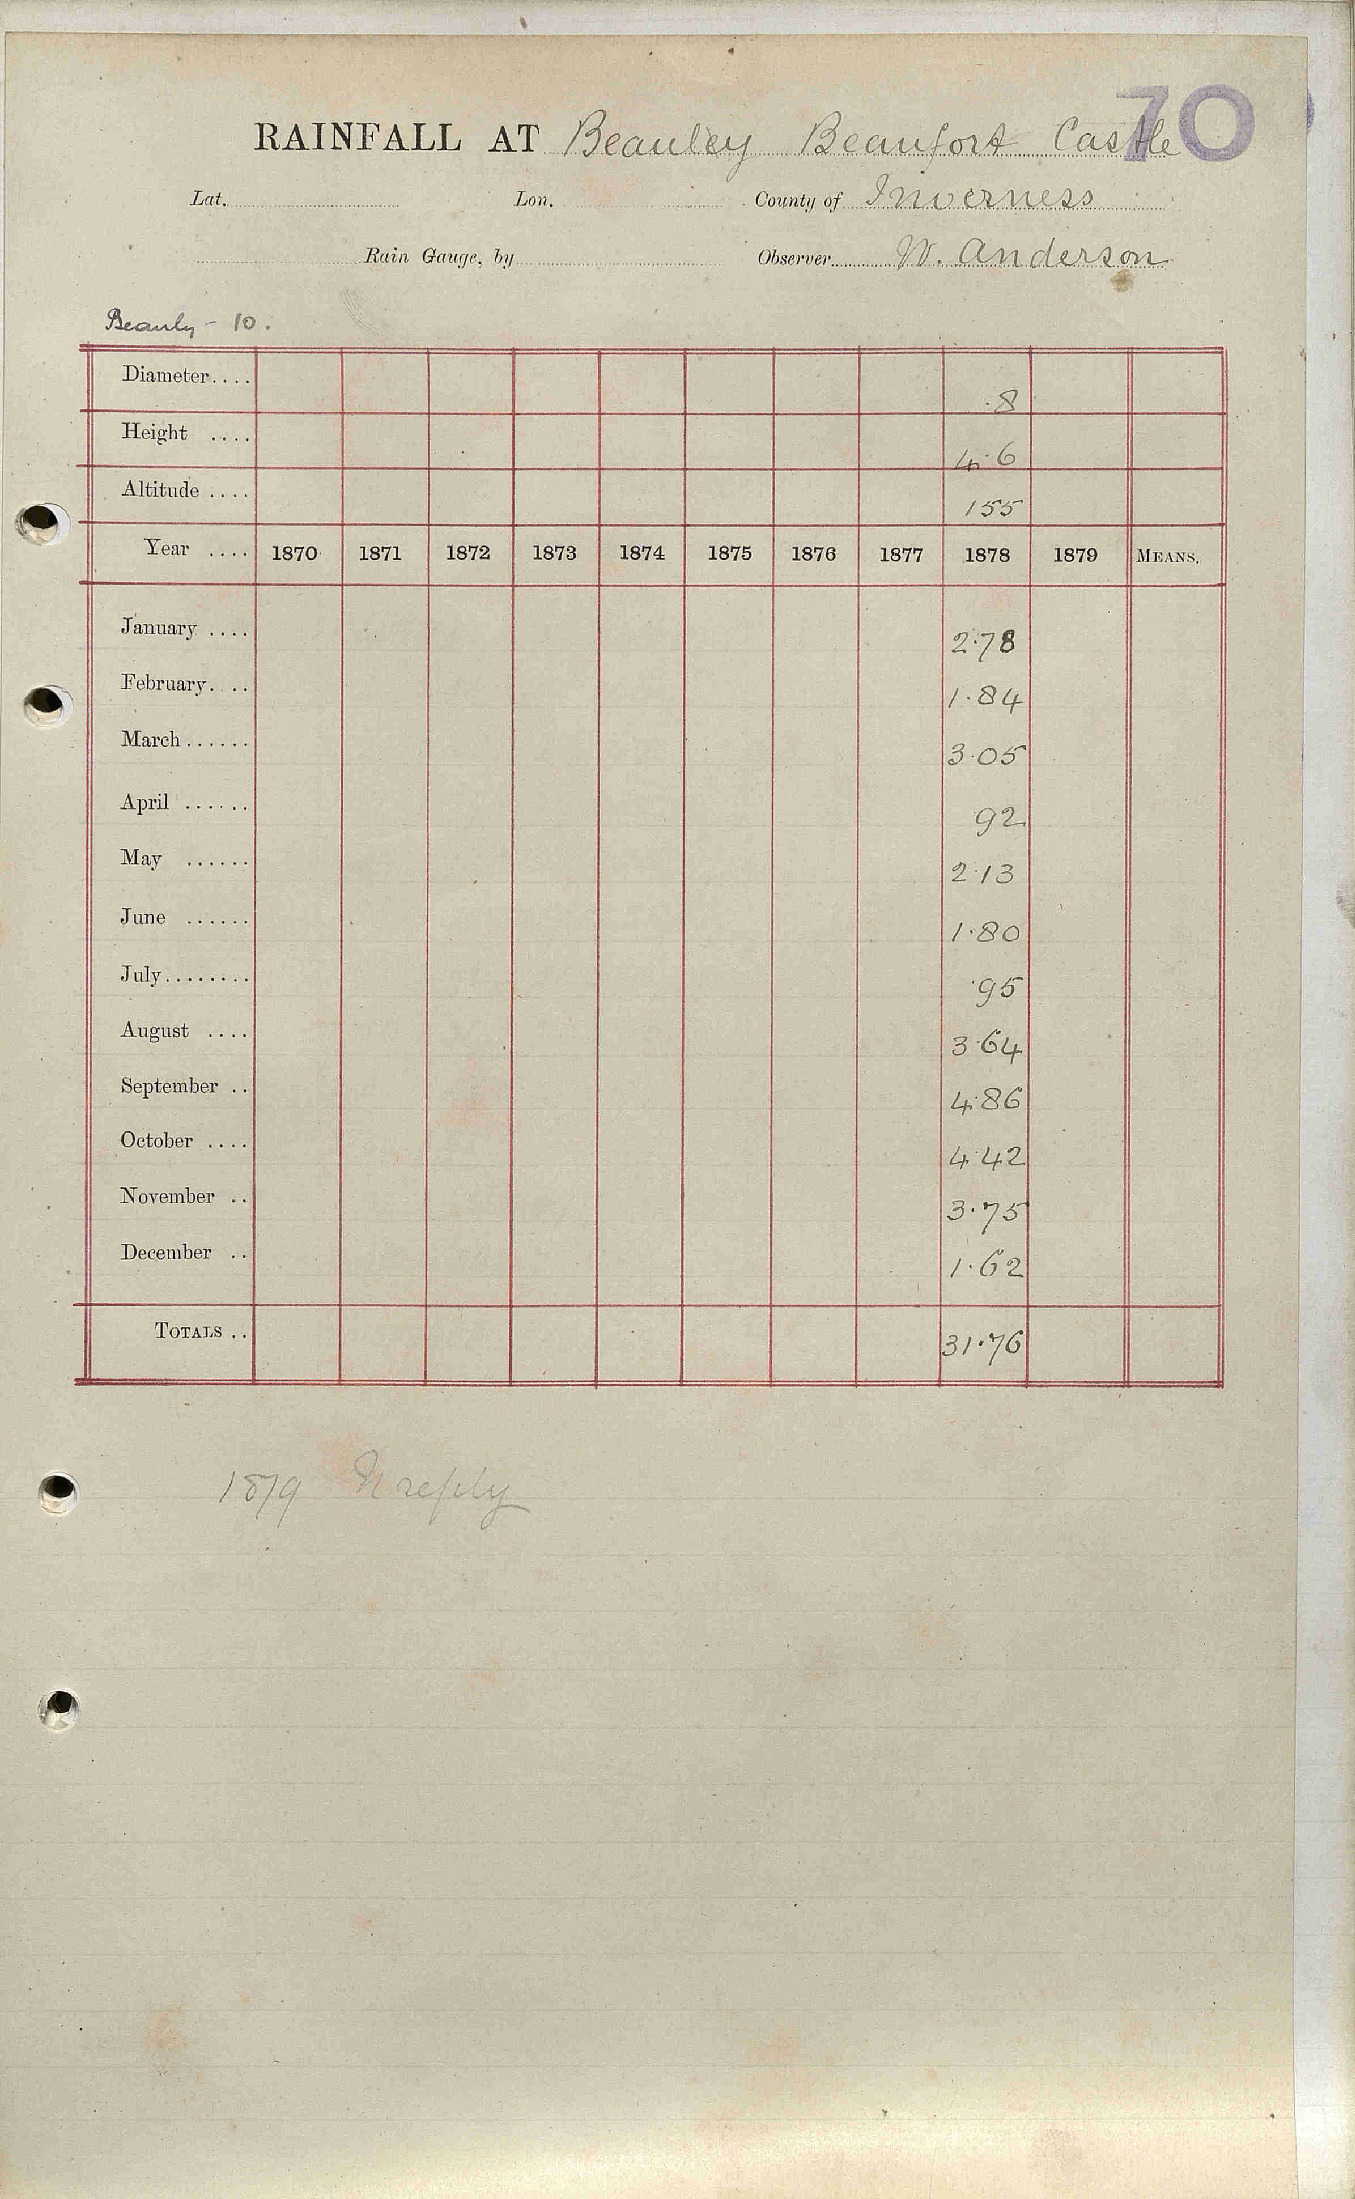 70
RAINFALL AT Beauley Beaufort Castle
Lat. Lon. County of Inverness
Rain Gauge, by Observer W. Anderson
Beauly - 10.
Diameter.... ·8
Height .... 4·6
Altitude .... 155
Year .... 1870 1871 1872 1873 1874 1875 1876 1877 1878 1879 MEANS.
January .... 2·78
February. .. 1·84
March...... 3·05
April ...... ·92
May ...... 2·13
June ...... 1·80
July........ ·95
August .... 3·64
September .. 4·86
October .... 4·42
November .. 3·75
December .. 1·62
TOTALS .. 31·76
1879 N reply